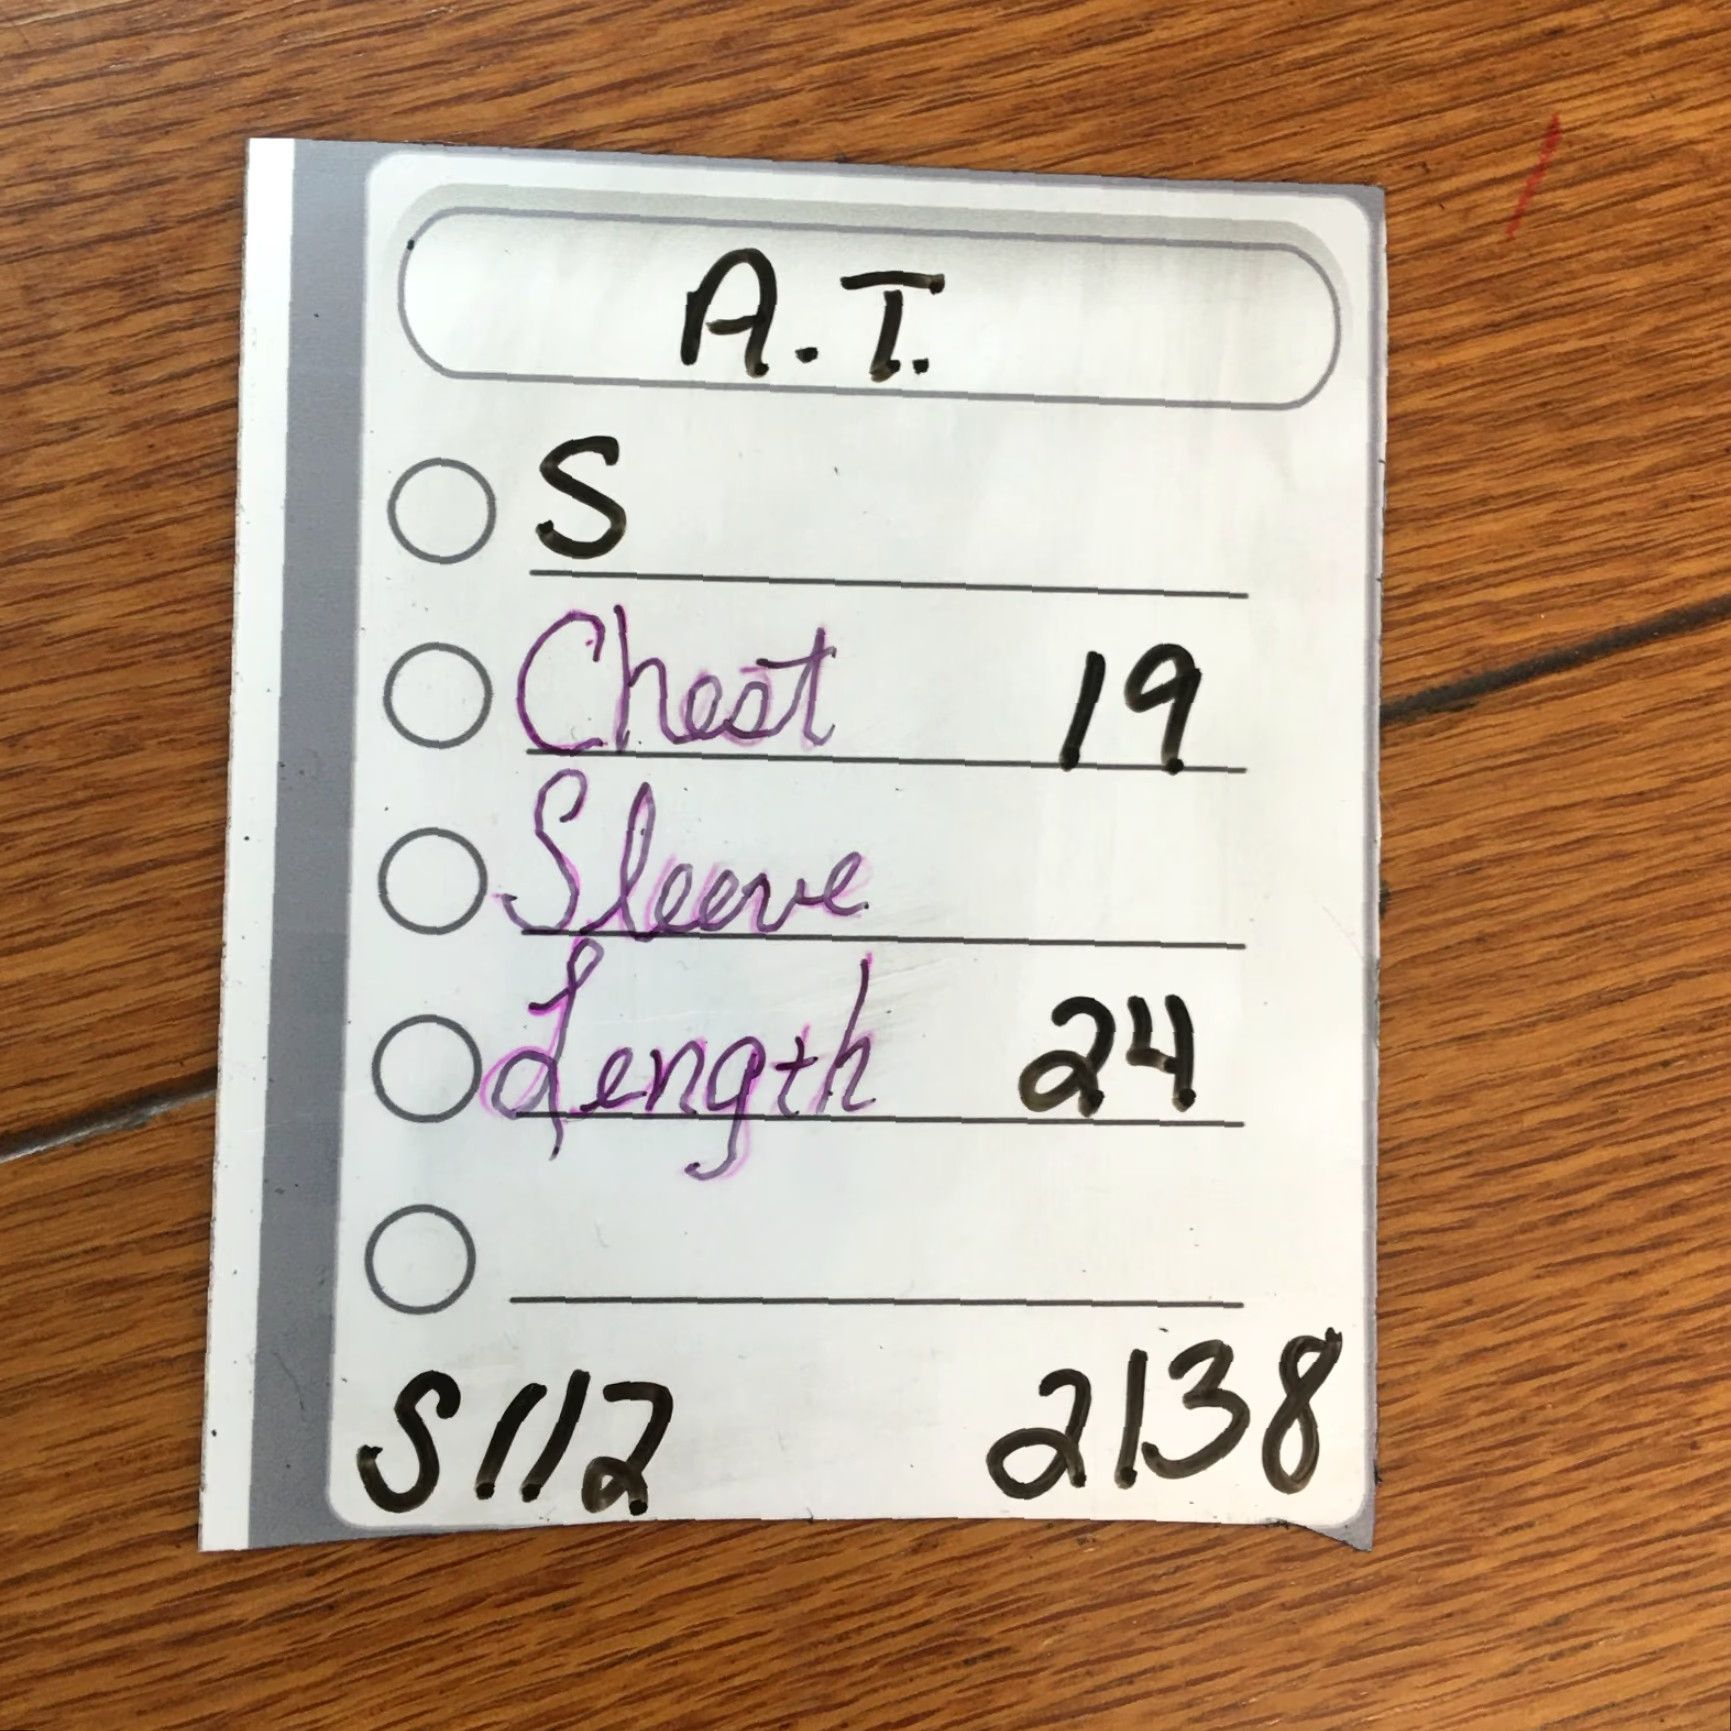 A.T.
S
Chest 19
Sleeve
Length 24
S112 2138